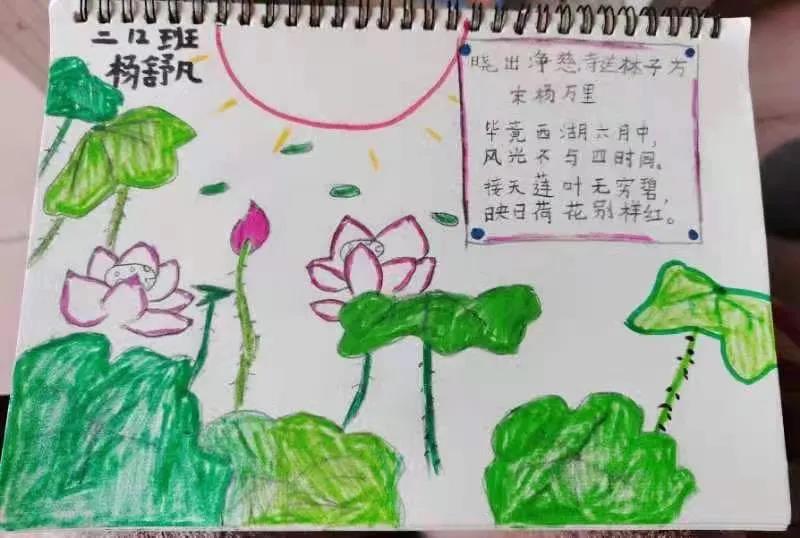 二12班
杨舒凡
晓出净慈寺送林子方
宋杨万里
毕竟西湖六月中,
风光不与四时同。
接天莲叶无穷碧,
映日荷花别样红。